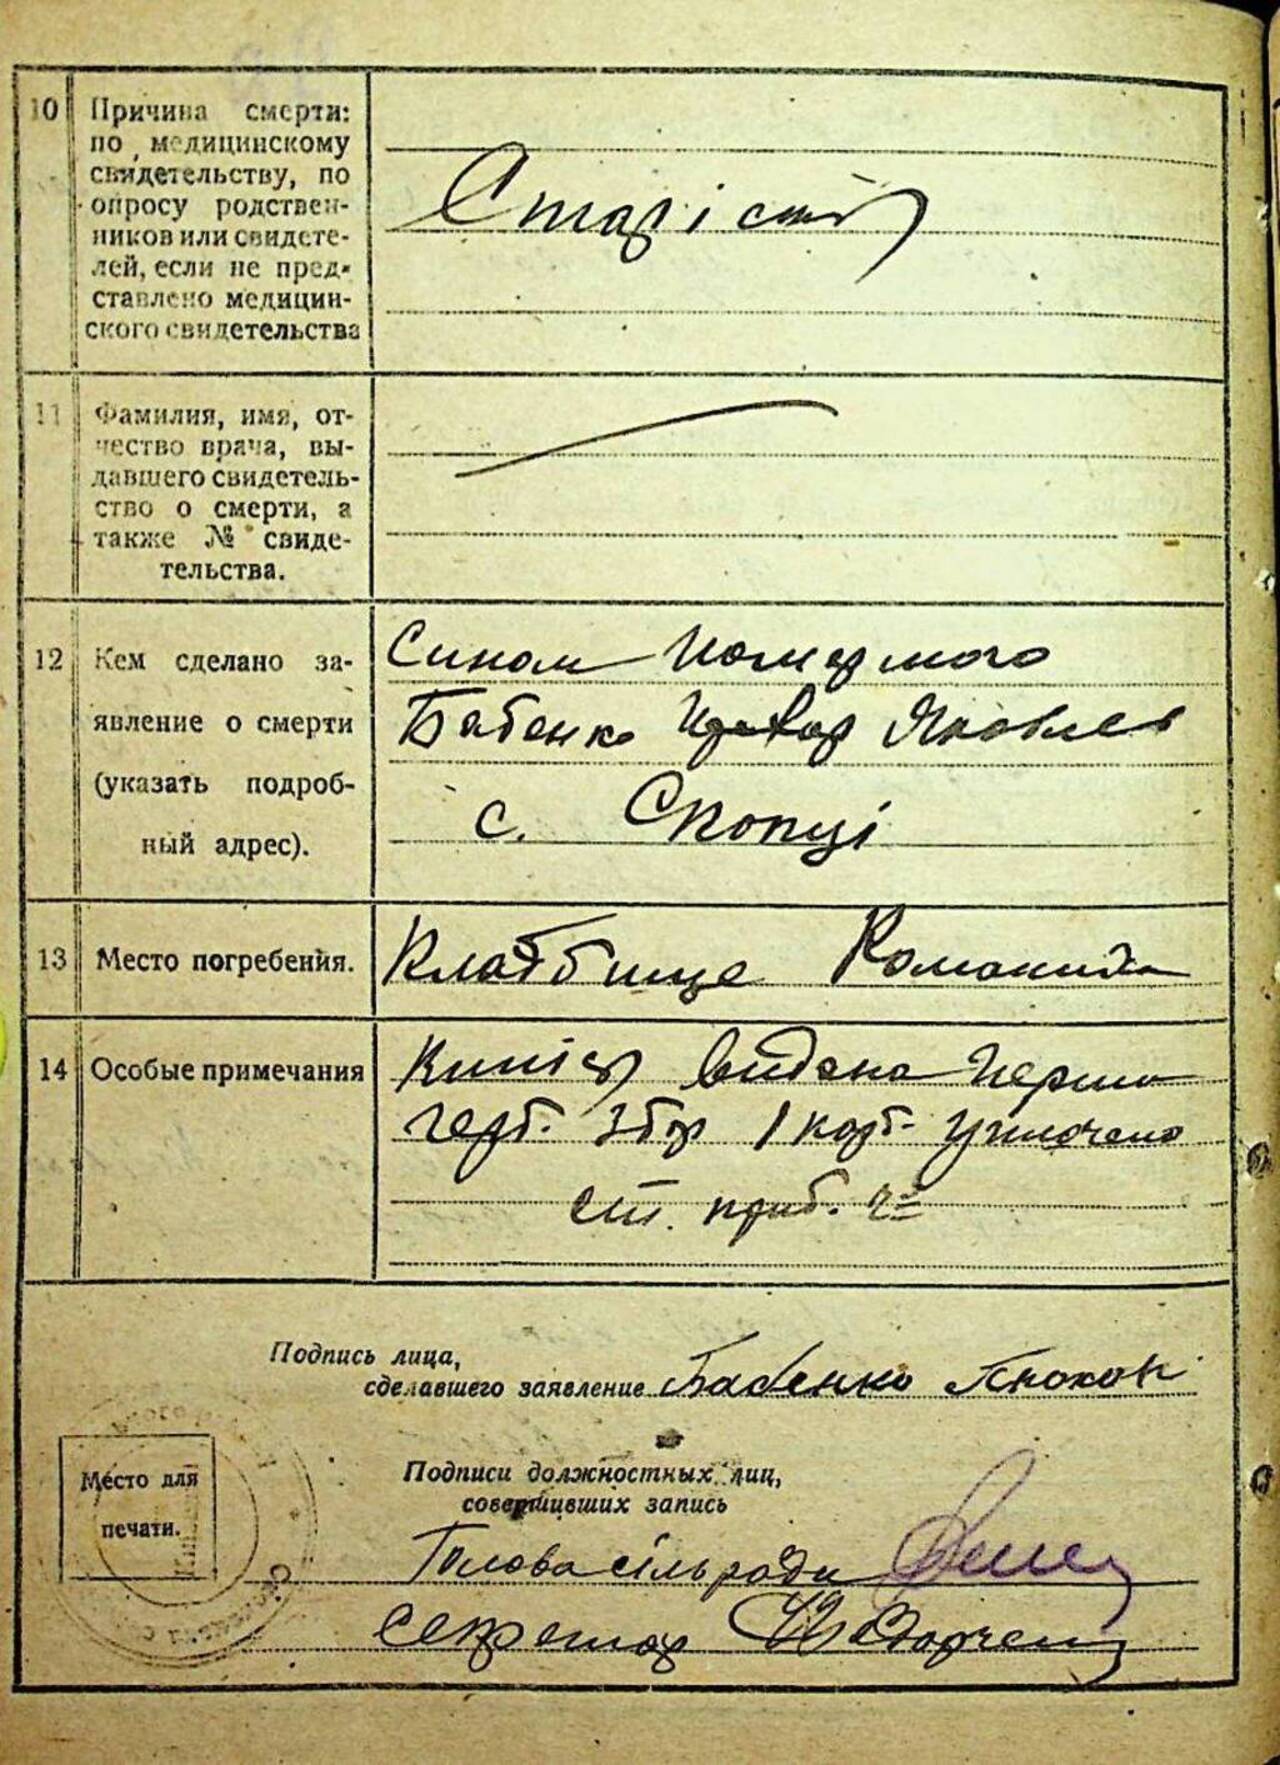 10 Причина смерти:
по медицинскому
свидетельству, по
опросу родствен-
ников или свидете-
лей, если не пред-
ставлено медицин-
ского свидетельства
Старість
11 Фамилия, имя, от-
чество врача, вы-
давшего свидетель-
ство о смерти, а
также № свиде-
тельства.
12 Кем сделано за-
явление о смерти
(указать подроб-
ный адрес).
Сином померлого
Бабенко Яковлев
с. Скопці
13 Место погребения.
Кладбище
14 Особые примечания
видана
герб. збор 1 карб. уплочено
Подпись лица,
сделавшего заявление Бабенко
Место для
печати.
Подписи должностных лиц,
совершивших запись
Голова сільради
Секретар